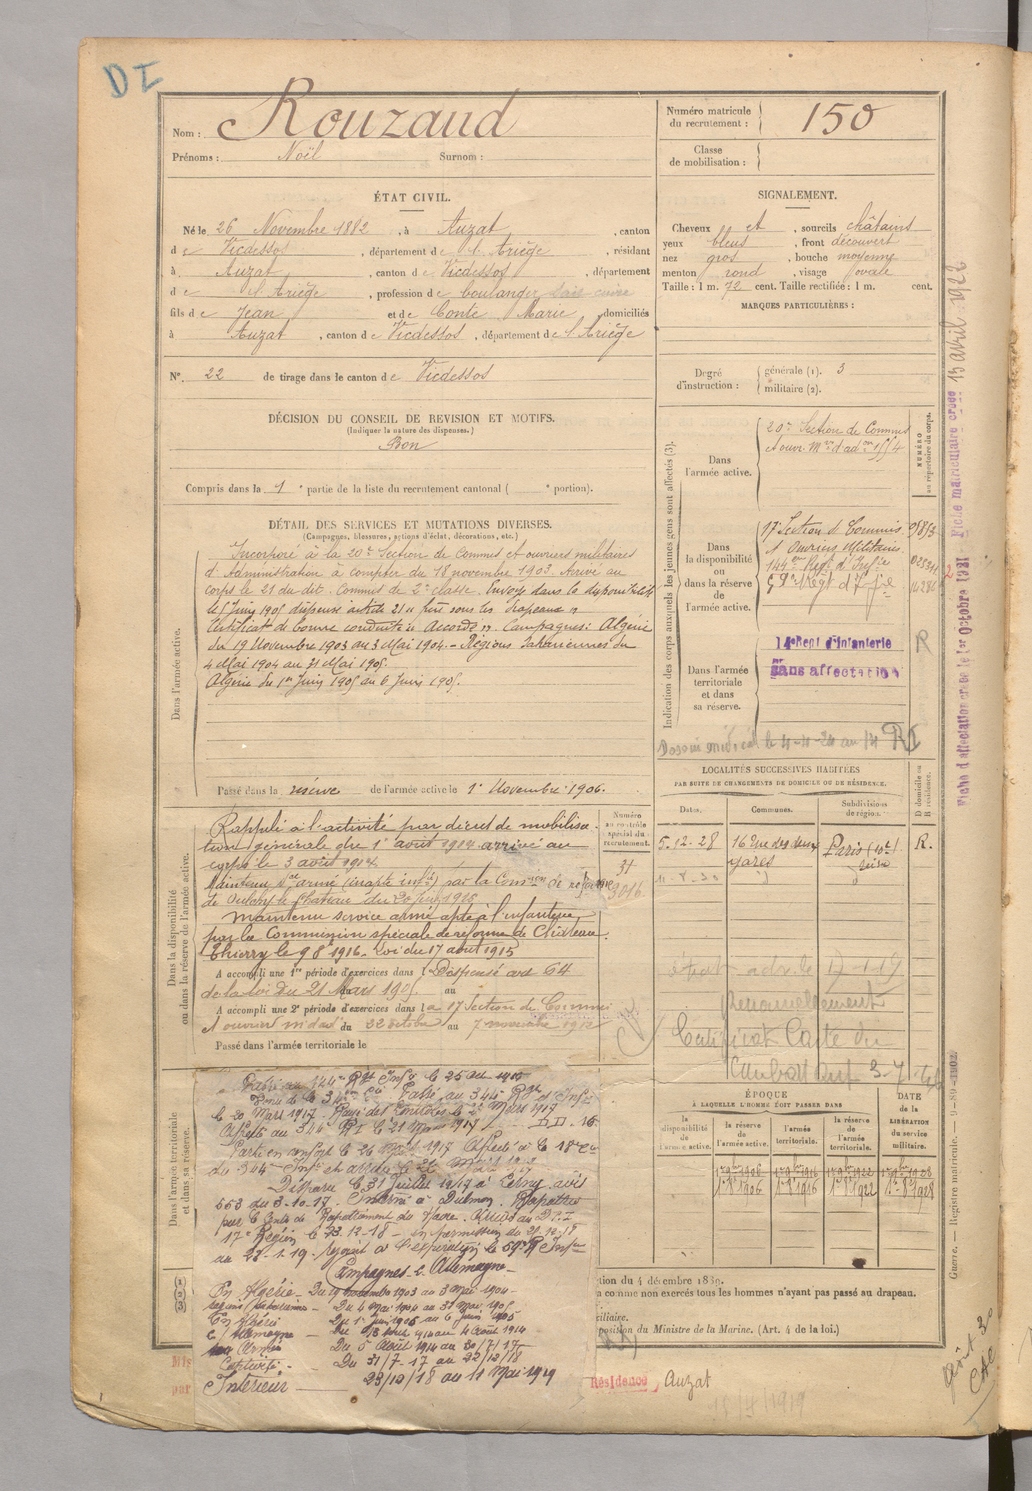 DI
Nom : Rouzaud
Prénoms : Noël Surnom :
Numéro matricule du recrutement : 150
Classe de mobilisation :
ÉTAT CIVIL.
Né le 26 Novembre 1882, à Auzat, canton
de Vicdessos, département de l'Ariège, résidant
à Auzat, canton de Vicdessos, département
de l'Ariège, profession de boulanger
fils de Jean et de Conte Marie domiciliés
à Auzat, canton de Vicdessos, département de l'Ariège
N° 22 de tirage dans le canton de Vicdessos
DÉCISION DU CONSEIL DE REVISION ET MOTIFS.
(Indiquer la nature des dispenses.)
Bon
Compris dans la 1e partie de la liste du recrutement cantonal ( e portion).
SIGNALEMENT.
Cheveux et, sourcils châtains
yeux bleus, front découvert
nez gros, bouche moyenne
menton rond, visage ovale
Taille : 1 m. 72 cent. Taille rectifiée : 1 m. cent.
MARQUES PARTICULIÈRES :
Degré d'instruction : générale (1). 3
militaire (2).
DÉTAIL DES SERVICES ET MUTATIONS DIVERSES.
(Campagnes, blessures, actions d'éclat, décorations, etc.)
Dans l'armée active.
Incorporé à la 20e Section de Commis et ouvriers militaires
d'Administration à compter du 18 novembre 1903. Arrivé au
corps le 21 du dit. Commis de 2e classe. Envoyé dans la disponibilité
le 6 Juin 1905 dispensé article 21 "frère sous les drapeaux"
Certificat de bonne conduite "Accordé". Campagnes : Algérie
du 19 Novembre 1903 au 3 Mai 1904 - Régions Sahariennes du
4 Mai 1904 au 31 Mai 1905
Algérie du 1er Juin 1905 au 6 Juin 1905.
Passé dans la réserve de l'armée active le 1er Novembre 1906.
Indication des corps auxquels les jeunes gens sont affectés (3).
NUMÉRO au répertoire du corps.
Dans l'armée active.
20e Section de Commis
et ouvr. Mres d'adon
Dans la disponibilité ou dans la réserve de l'armée active.
17e Section d. Commis
et Ouvriers Militaires
144e Régt d'Infie
59e Régt d'Infie
Dans l'armée territoriale et dans sa réserve.
14e Regt d'Infanterie
R
sans affectation
Dossier médical le 4-4-24 au 14 RI
Dans la disponibilité ou dans la réserve de l'armée active.
Rappelé à l'activité par décret de mobilisa-
tion générale du 1er août 1914 arrivé au
corps le 3 août 1914.
Maintenu sce armé (inapte infie) par la Comon de réforme
de Oulchy le Château du 20 Juin 1915
Maintenu service armé apte à l'infanterie
par la Commission spéciale de réforme de Château-
Thierry le 9 8e 1916. Loi du 17 août 1915
A accompli une 1re période d'exercices dans Dispensé art 64
de la loi du 21 Mars 1905 du au
A accompli une 2e période d'exercices dans la 17 Section de Commis
et ouvriers m d'ad du 22 octobre au 7 novembre 1912
Passé dans l'armée territoriale le
Numéro au contrôle spécial du recrutement.
LOCALITÉS SUCCESSIVES HABITÉES
PAR SUITE DE CHANGEMENTS DE DOMICILE OU DE RÉSIDENCE.
Dates. Communes. Subdivisions de région. D domicile ou R résidence.
5.12.28 16 rue des deux gares Paris (10e) Seine R.
11.8.30
Renouvellement
Certificat Carte du
Combattant
Dans l'armée territoriale et dans sa réserve.
Passé au 144e Rgt Infie le 25 oct 1916
Passé au 344e Rgt d'Infie
le 20 Mars 1917
Affecté au 344e RI le 21 Mars 1917
Parti en renfort le 26 1917 Affecté à la 18e Cie
du 344e Infie
Disparu le 31 Juillet 1917 à Cerny avis
553 du 3-10-17. Interné à Dülmen. Rapatrié
par le Centre de Rapatriement du Havre.
17e Région le 23-12-18 - en permission du 29-12-18
au 28-1-19. rejoint à l'expiration le 59e R Infie
Campagnes c. Allemagne -
En Algérie - Du 19 novembre 1903 au 3 Mai 1904 -
Régions Sahariennes - Du 4 Mai 1904 au 31 Mai 1905
En Algérie Du 1er Juin 1905 au 6 Juin 1905
c/ Allemagne - Du 3 août 1914 au 4 Août 1914
Aux Armées Du 5 Août 1914 au 30/7/17
Captivité - Du 31/7-17 au 22/12/18
Intérieur - 23/12/18 au 11 Mai 1919
ÉPOQUE
À LAQUELLE L'HOMME DOIT PASSER DANS
la disponibilité de l'armée active. la réserve de l'armée active. l'armée territoriale. la réserve de l'armée territoriale. DATE de la LIBÉRATION du service militaire.
1er 9bre 1906 1er 9bre 1916 1er 9bre 1922 1er 9bre 1928
1er 8 1906 1er 8 1916 1er 8 1922 1er 8 1928
tion du 4 décembre 1889.
a comme non exercés tous les hommes n'ayant pas passé au drapeau.
xiliaire.
position du Ministre de la Marine. (Art. 4 de la loi.)
Résidence, Auzat
Fiche d'affectation créée le 1er Octobre 1921 Fiche matriculaire créée 13 avril 1922
Guerre. — Registre matricule. — 9-80-1902.